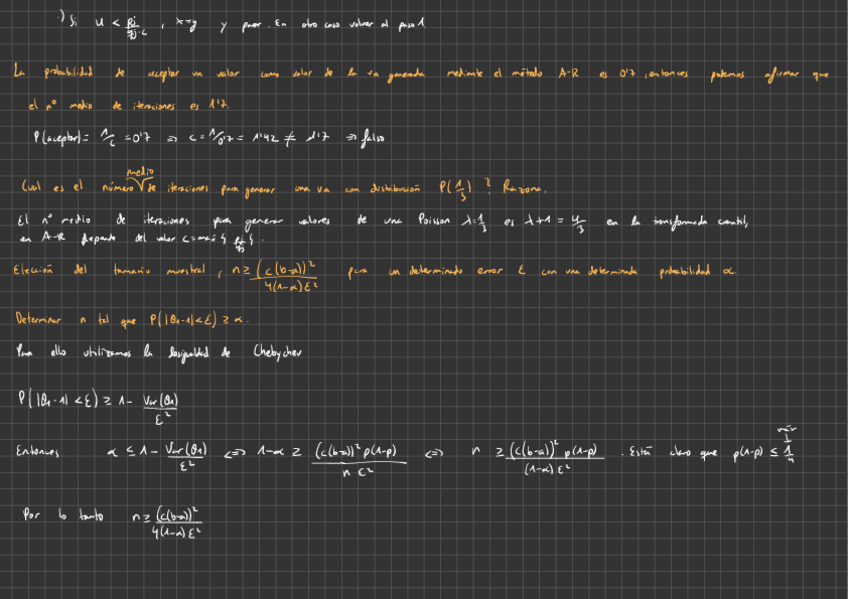 ·) Si u < pj/qj·c , x=y y parar. En otro caso volver al paso 1.
La probabilidad de aceptar un valor como valor de la va generada mediante el método A-R es 0'7, entonces podemos afirmar que
el nº medio de iteraciones es 1'7.
P(aceptar) = 1/c = 0'7 ⇒ c = 1/0'7 = 1'42 ≠ 1'7 ⇒ falso
Cual es el número medio de iteraciones para generar una va con distribución P(1/3) ? Razona.
El nº medio de iteraciones para generar valores de una Poisson λ=1/3 es λ+1 = 4/3 en la transformada cuantil,
en A-R depende del valor c=max { pj/qj }.
Elección del tamaño muestral , n ≥ (c(b-a))²/4(1-α)ε² para un determinado error ε con una determinada probabilidad α
Determinar n tal que P(|θ1-1|<ε) ≥ α.
Para ello utilizamos la desigualdad de Chebychev
P(|θ1-1|<ε) ≥ 1- Var(θ1)/ε²
Entonces α ≤ 1- Var(θ1)/ε² ⇔ 1-α ≥ (c(b-a))² p(1-p)/n ε² ⇔ n ≥ (c(b-a))² p(1-p)/(1-α)ε² . Está claro que p(1-p) ≤ 1/4
Por lo tanto n ≥ (c(b-a))²/4(1-α)ε²